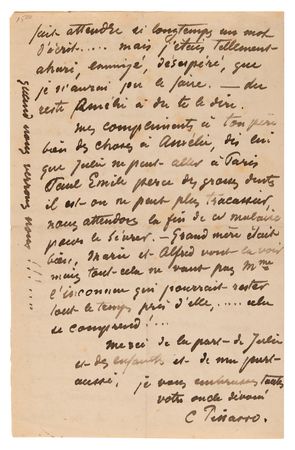 fait attendre si longtemps un mot
d'écrit..... mais j'étais tellement
ahuri, ennuyé, désespéré, que
je n'aurai pu le faire. – du
reste Amélie a du te le dire.
mes compliments à ton père
bien des choses à Amélie, dis lui
que Julie ne peut aller à Paris
Paul Emile perce de grosses dents
il est on ne peut plus tracassier,
nous attendons la fin de ce malaise
pour le sevrer. – Grand mère était
bien, Marie et Alfred vont la voir
mais tout cela ne vaut pas Mme
l'inconnu qui pourrait rester
tout le temps près d'elle,..... cela
se comprend!...
Merci de la part de Julie
et des enfants et de ma part
aussi, je vous embrasse toutes
votre oncle dévoué
C. Pissarro.
quand nous verrons nous!!!....